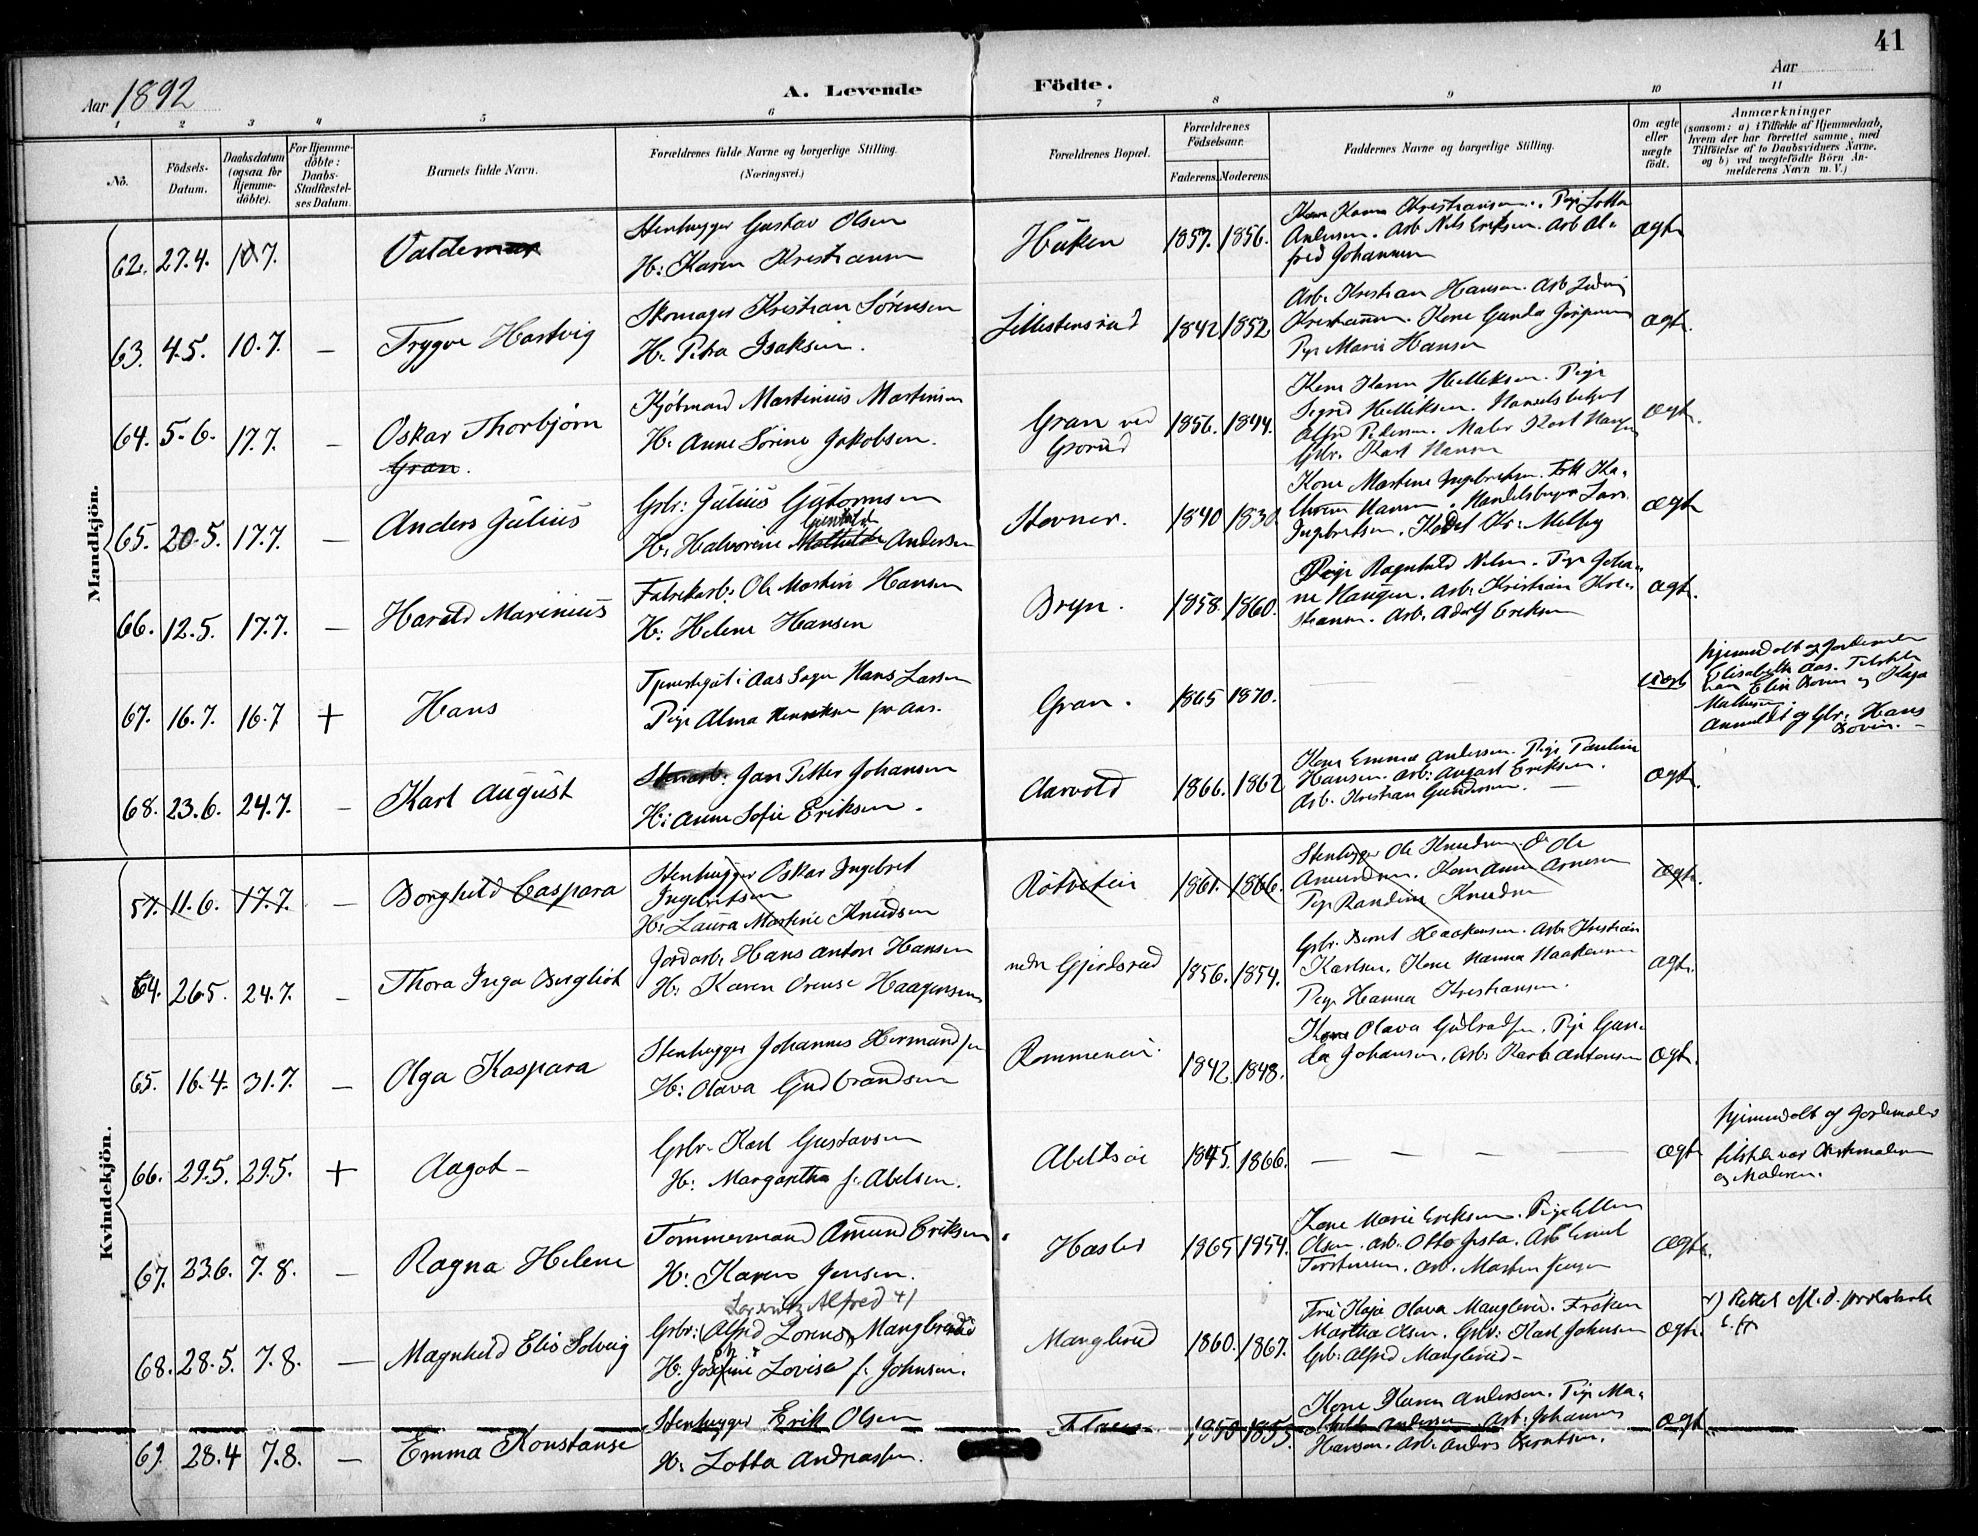 41
Aar 1892
A. Levende Födte.
Aar
1 2 3 4 5 6 7 8 9 10 11
No.
Födsels-
Datum.
Daabsdatum
(ogsaa for
Hjemme-
döbte).
For Hjemme-
döbte:
Daabs-
Stadfæstel-
ses Datum.
Barnets fulde Navn.
Forældrenes fulde Navne og borgerlige Stilling.
(Næringsvei.)
Forældrenes Bopæl.
Forældrenes
Födselsaar.
Faderens. Moderens.
Faddernes Navne og borgerlige Stilling.
Om ægte
eller
uægte
født.
Anmærkninger
(saasom: a) i Tilfælde af Hjemmedaab,
hvem der har forrettet samme, med
Tilföielse af to Daabsvidners Navne.
og b) ved uægtefödte Börn An-
melderens Navn m. V.)
Mandkjön.
62. 27.4. 10.7. Valdemar
Stenhugger Gustav Olsen
H: Karen Kristiansen
1857. 1856.
Andersen. Arb. Nils Eriksen. Arb. Al-
fred Johannesen
ægte
63. 4.5. 10.7. — Trygve Hartvig
Skomager Kristian Sörensen
H: Petra Isaksen.
1842 1852
Arb. Kristian Hansen. Arb. Ludvig
Pige Marie Hansen
ægte.
64. 5.6. 17.7. — Oskar Thorbjörn
Gran.
Kjöbmand Martinius Martinsen
H: Anne Sörine Jakobsen.
Gran ved
Grorud
1856. 1844.
Sigrid Helliksen. Handelsbetjent
Alfred Pedersen. Maler Karl Hansen
Grbr. Karl Hansen
ægte.
65. 20.5. 17.7. — Anders Julius
Grbr: Julius Guttormsen
H: Halvorine Mathilde Andersen
Stovner.
1840 1830
Ingebretsen. Kadet Chr: Melby
ægte
66. 12.5. 17.7. — Harald Marinius
Fabrikarb: Ole Martin Hansen
H: Helene Hansen
Bryn.
1858. 1860.
Pige Ragnhild Nilsen. Pige Joha-
ne Haugen. Arb: Kristian Kri-
stiansen. Arb. Adolf Eriksen
ægte.
67. 16.7. 16.7 + Hans
Tjenestegut i Aas Sogn Hans Larsen
Pige Alma Henriksen fra Aas.
Gran.
1865 1870.
— — — —
uægte
Hjemmedöbt af Jordemoder
Elisabeth Aas. Tilstede
var Elise Boren og Kaja
Mathisen.
Anmeldt af Gbr. Hans
Boren. —
68. 23.6. 24.7. — Karl August
Stenarb: Jan Petter Johansen
H: Anne Sofie Eriksen.
Aarvold
1866. 1862
Kone Emma Andersen. Pige Pauline
Hansen. Arb: August Eriksen.
Arb. Kristian Gundersen. —
ægte.
Kvindekjön.
57. 11.6. 17.7. — Borghild Caspara
Stenhugger Oskar Ingebret
Ingebretsen
H: Laura Martine Knudsen
1861. 1866.
Stenhugger Ole Knudsen. do Ole
Amundsen. Kone Anne Arnesen
Pige Randine Knudsen
ægte.
64. 26.5. 24.7. — Thora Inga Bergliot
Jordarb: Hans Anton Hansen
H: Karen Orense Haagensen
1856. 1854.
Grbr. Bernt Haakensen. Arb: Kristian
Karlsen. Kone Hanna Haakensen
Pige Hanna Kristiansen.
ægte.
65. 16.4. 31.7. — Olga Kaspara
Stenhugger Johannes Hermandsen
H: Olava Gudbrandsen
Rommeneie.
1842. 1848.
Kone Olava Gulbrandsen. Pige Gun-
da Johansen. Arb: Karl Antonsen
ægte.
66. 29.5. 29.5. + Aagot —
Grbr. Karl Gustavsen
H: Margaretha f. Abelsen.
Abeldsöe
1845. 1866.
— — — —
ægte
Hjemmedöbt af Jordemoder
tilstede var Bestemoderen
og Moderen.
67. 23.6. 7.8. — Ragna Helene
Tömmermand Amund Eriksen
H: Karen Jensen.
Hasler
1865 1854.
Kone Marie Eriksen. Pige Ellen
Olsen. Arb. Otto Josta. Arb Emil
Torstensen. Arb. Martin Jensen
ægte.
68. 28.5. 7.8. — Magnhild Elis Solveig
Lorentz Alfred +)
Grbr: (Alfred Lorens) Manglerud
H: Josefine Lovise f. Johnsen.
Manglerud
1860. 1867.
Fru Kaja Olava Manglerud. Fröken
Martha Olsen. Grbr: Karl Johnsen
Grb: Alfred Manglerud —
ægte.
69. 28.4 7.8. — Emma Konstanse
Stenhugger Erik Olsen
H: Lotta Andreassen.
1850 1853.
Kone Karen Andersen. Pige Ma-
thilde Andersen. Arb: Johannes
Hansen. Arb: Anders Berntsen.
ægte